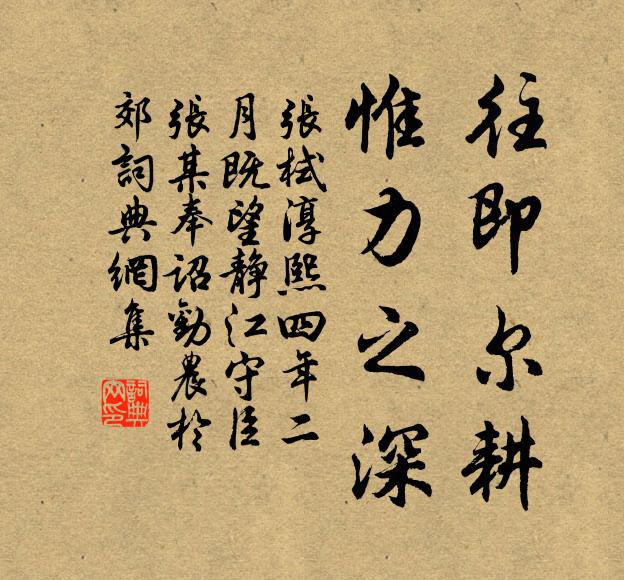 往即尔耕
惟力之深
張栻淳熙四年二
月既望静江守臣
張某奉詔勸農於
郊詞典網集
詞典網印